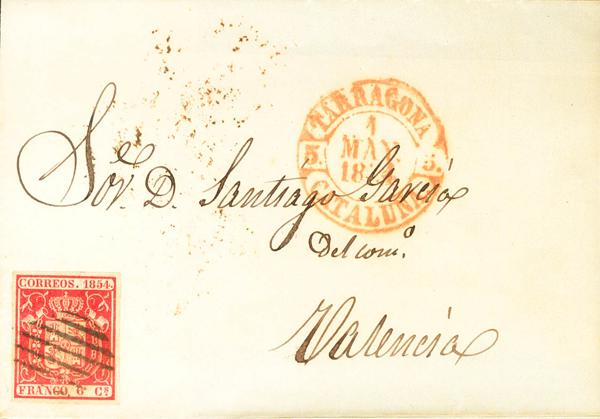 TARRAGONA
1
MAY.
18
5. 5.
CATALUÑA
Sor. D. Santiago García
Del com.º
Valencia
CORREOS. 1854.
FRANCO, 6 Cs.